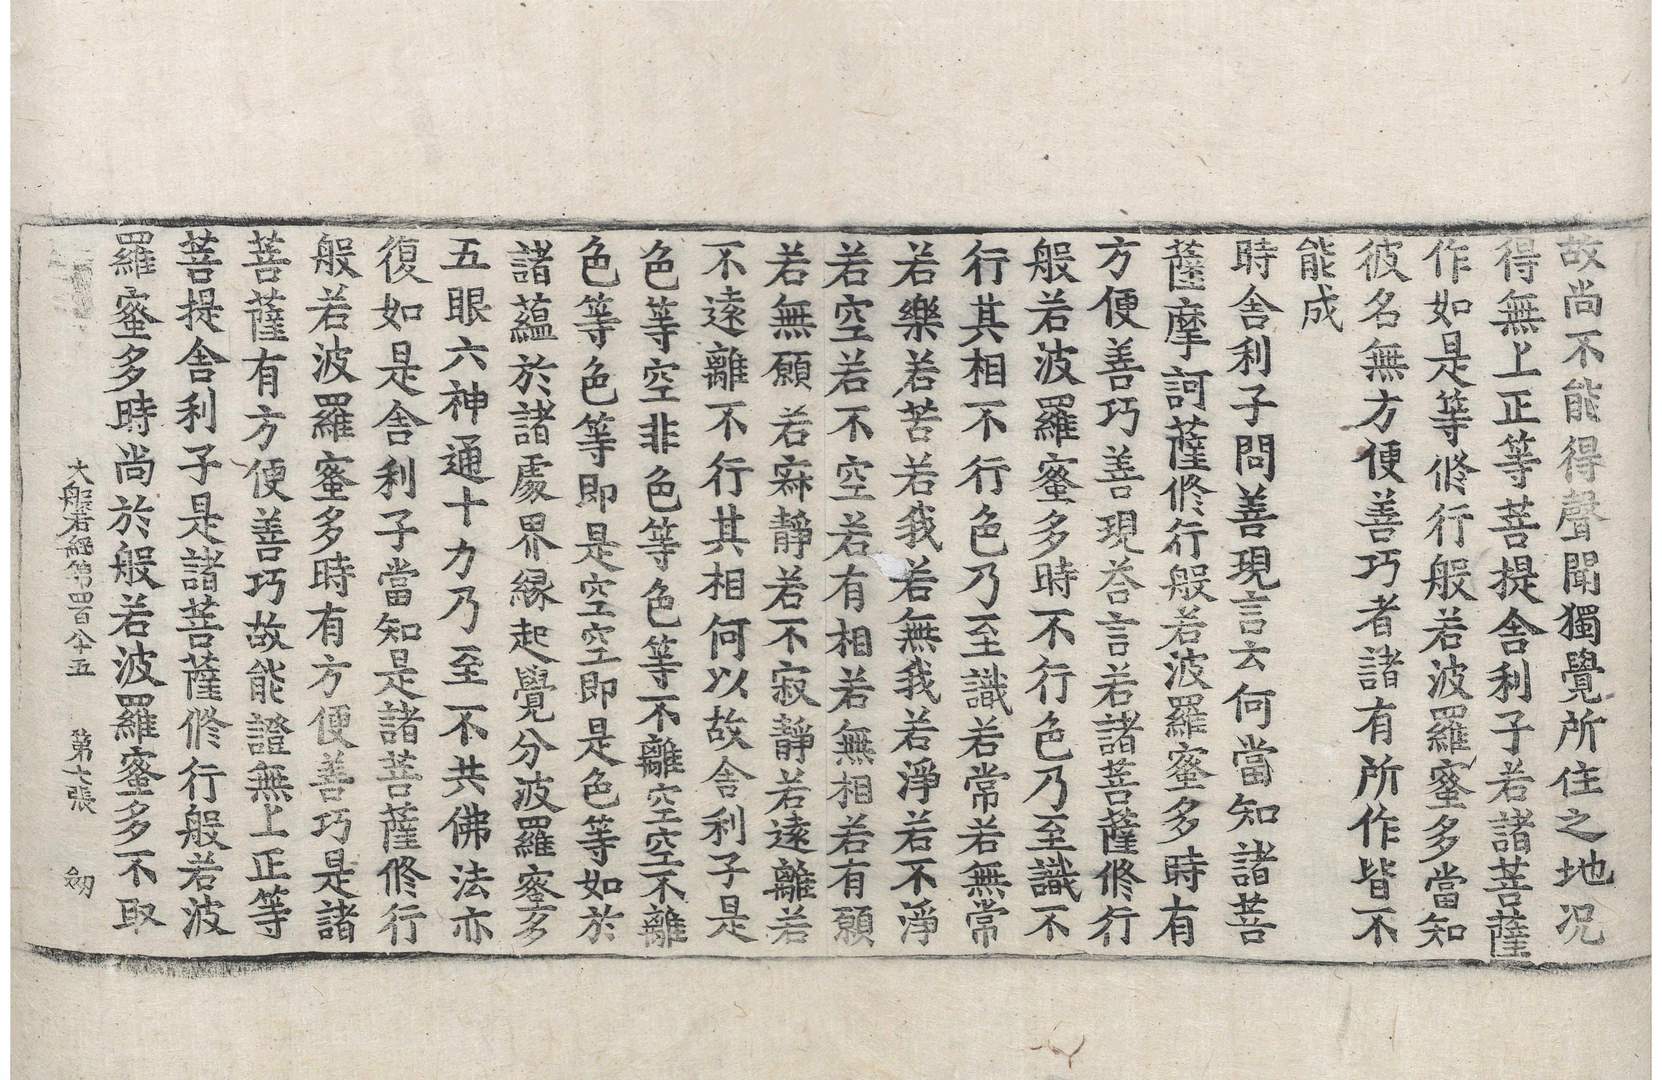 故尚不能得聲聞獨覺所住之地况
得無上正等菩提舍利子若諸菩薩
作如是等修行般若波羅蜜多當知
彼名無方便善巧者諸有所作皆不
能成
時舍利子問善現言云何當知諸菩
薩摩訶薩修行般若波羅蜜多時有
方便善巧善現荅言若諸菩薩修行
般若波羅蜜多時不行色乃至識不
行其相不行色乃至識若常若無常
若樂若苦若我若無我若淨若不淨
若空若不空若有相若無相若有願
若無願若寂靜若不寂靜若遠離若
不遠離不行其相何以故舍利子是
色等空非色等色等不離空空不離
色等色等即是空空即是色等如於
諸蘊於諸處界緣起覺分波羅蜜多
五眼六神通十力乃至不共佛法亦
復如是舍利子當知是諸菩薩修行
般若波羅蜜多時有方便善巧是諸
菩薩有方便善巧故能證無上正等
菩提舍利子是諸菩薩修行般若波
羅蜜多時尚於般若波羅蜜多不取
大般若經第四百八十五 第七張 匆